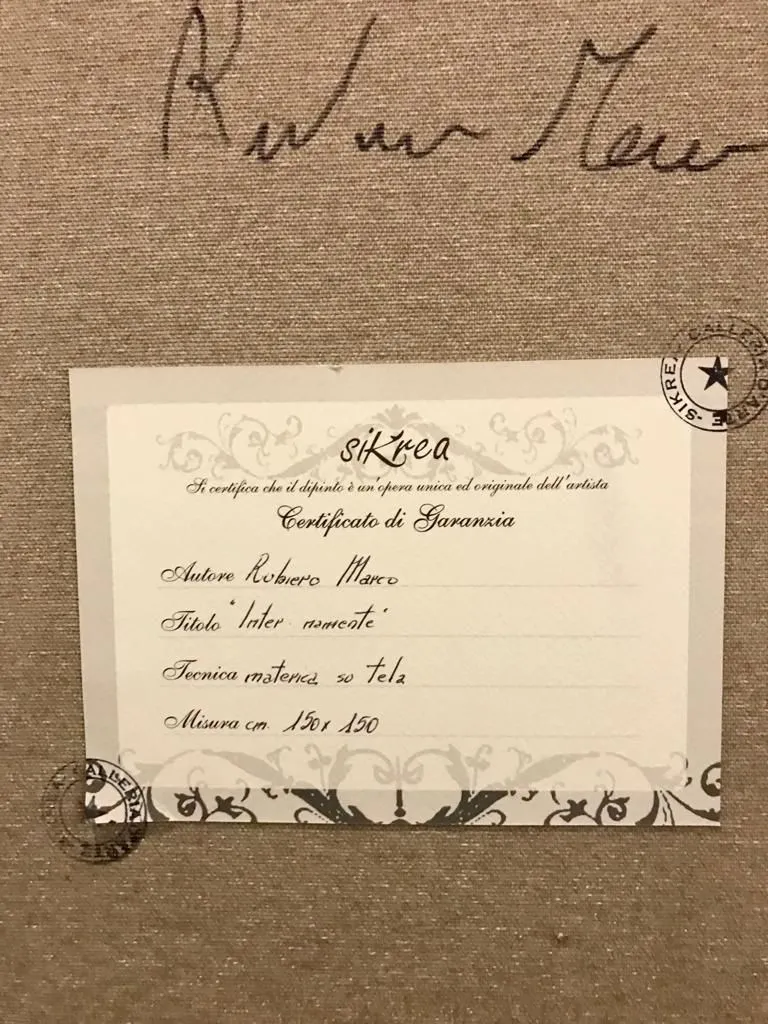 siKrea
Si certifica che il dipinto è un'opera unica ed originale dell'artista
Certificato di Garanzia
Autore Rubiero Marco
Titolo "Inter namente"
Tecnica materica su tela
Misura cm. 150x150
GALLERIA D'ARTE - SIKREA
GALLERIA